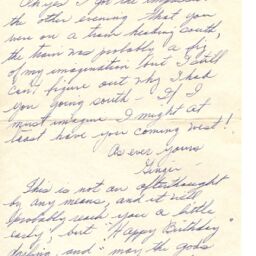 Oh yes I got the impression
the other evening that you
were on a train heading south,
the train was probably a fig
of my imagination but I still
can't figure out why I had
you going south - If I
must imagine I might at
least have you coming west!
As ever yours
Ginger -
This is not an afterthought
by any means, and it will
probably reach you a little
early, but "Happy Birthday"
darling, and " may the gods